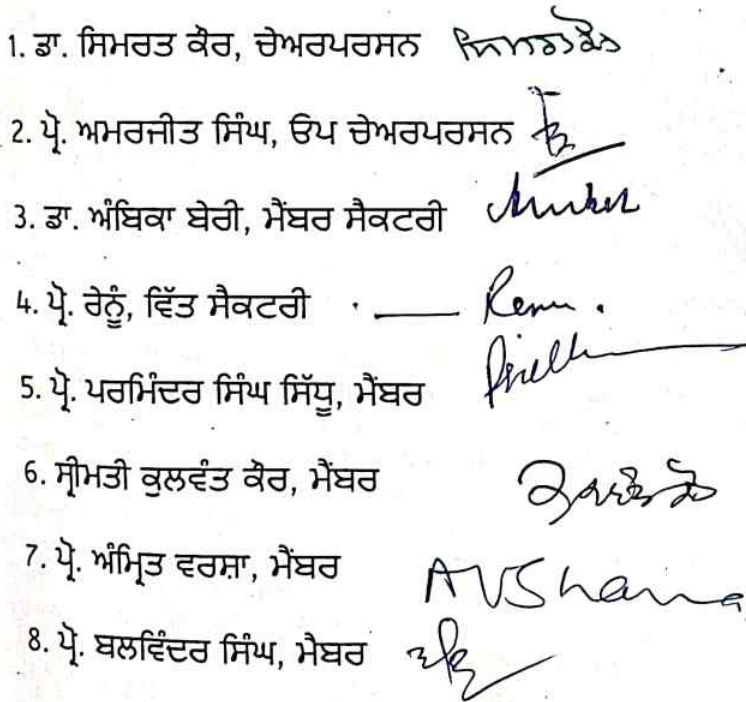 1. ਡਾ. ਸਿਮਰਤ ਕੌਰ, ਚੇਅਰਪਰਸਨ
2. ਪ੍ਰੋ. ਅਮਰਜੀਤ ਸਿੰਘ, ਓਪ ਚੇਅਰਪਰਸਨ
3. ਡਾ. ਅੰਬਿਕਾ ਬੇਰੀ, ਮੈਂਬਰ ਸੈਕਟਰੀ
4. ਪ੍ਰੋ. ਰੇਨੂੰ, ਵਿੱਤ ਸੈਕਟਰੀ Renu.
5. ਪ੍ਰੋ. ਪਰਮਿੰਦਰ ਸਿੰਘ ਸਿੱਧੂ, ਮੈਂਬਰ
6. ਸ੍ਰੀਮਤੀ ਕੁਲਵੰਤ ਕੌਰ, ਮੈਂਬਰ
7. ਪ੍ਰੋ. ਅੰਮ੍ਰਿਤ ਵਰਸ਼ਾ, ਮੈਂਬਰ AVSharma
8. ਪ੍ਰੋ. ਬਲਵਿੰਦਰ ਸਿੰਘ, ਮੈਬਰ